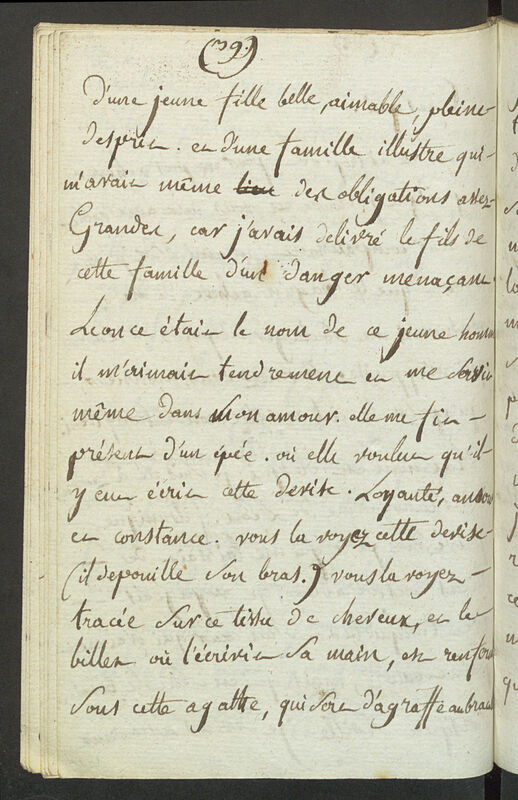 (39)
d'une jeune fille belle, aimable, pleine
desprit. et d'une famille illustre qui
m'avait même des obligations assez
Grandes, car j'avais delivré le fils de
cette famille d'un danger menaçant
Léonce était le nom de ce jeune homme
il m'aimait tendrement et me servit
même dans mon amour. elle me fit
présent d'un épée. où elle voulut qu'il
y eut écrit cette devise. Loyauté, amour
et constance. vous la voyez cette devise
(il depouille son bras.) vous la voyez
tracée sur ce tissu de cheveux, et le
billet où l'écrivit sa main, est renfermé
sous cette agatte, qui sert d'agraffe au bracelet